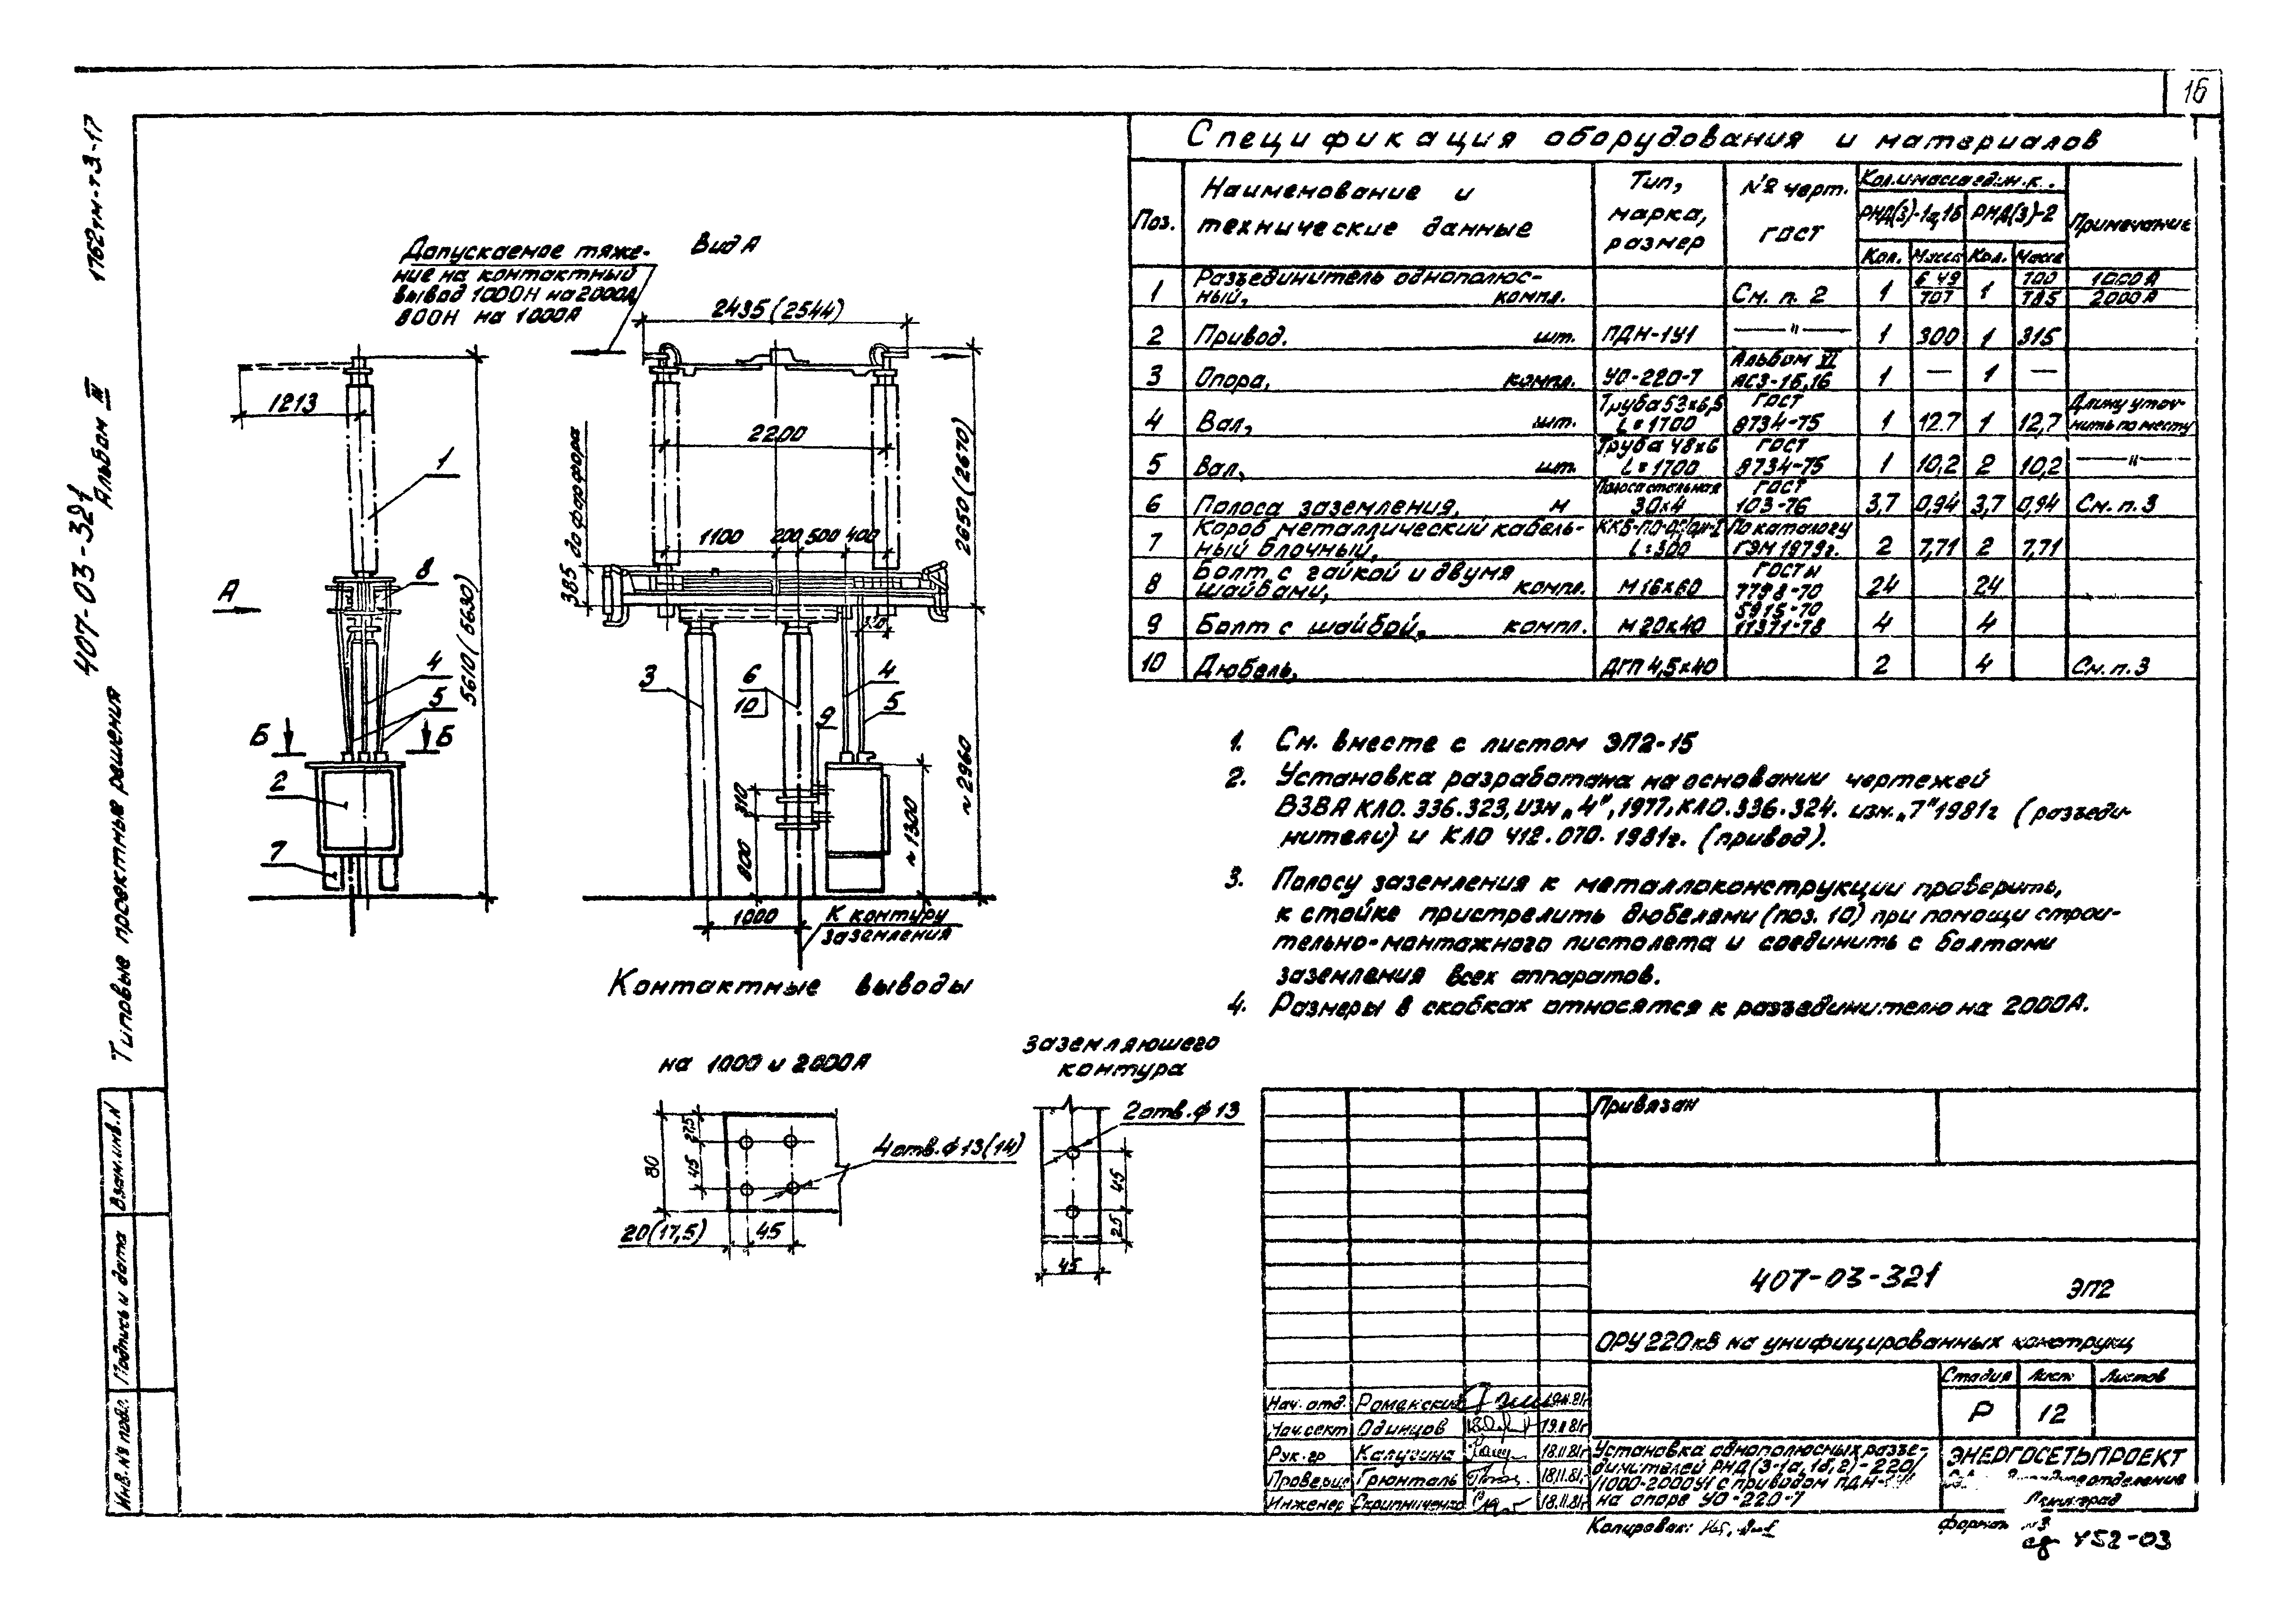 16
1762тм-т3-17
407-03-321
Альбом III
Типовые проектные решения
Взам.инв.N
Подпись и дата
Инв.№ подл.
Допускаемое тяже-
ние на контактный
вывод 1000Н на 2000А
800Н на 1000А
Вид А
2435(2544)
1213
2200
385 до фарфора
1100 200 500 400
2650(2670)
5610(5630)
~2960
А
1
8
4
5
Б Б
2
7
3
6
10
9
4
5
310
800
~1300
1000
К контуру
заземления
Контактные выводы
на 1000 и 2000А
заземляющего
контура
27,5
45
80
20(17,5)
45
4отв.ф13(14)
2отв.ф13
45
25
45
Спецификация оборудования и материалов
Поз. Наименование и технические данные Тип, марка, размер № черт. ГОСТ Кол.и масса един.к. Примечание
РНД(З)-1а,1б РНД(З)-2
Кол. Масса Кол. Масса
1 Разъединитель однополюс-
ный, компл. См. п. 2 1 649/707 1 700/785 1000А/2000А
2 Привод. шт. ПДН-1У1 —"— 1 300 1 315
3 Опора, компл. УО-220-7 Альбом VI АС3-15,16 1 — 1 —
4 Вал, шт. Труба53х6,5 L=1700 ГОСТ 8734-75 1 12.7 1 12,7 Длину уточ-
нить по месту
5 Вал, шт. Труба 48х6 L=1700 ГОСТ 8734-75 1 10,2 2 10,2 —"—
6 Полоса заземления, м Полоса стальная 30х4 ГОСТ 103-76 3,7 0,94 3,7 0,94 См. п.3
7 Короб металлический кабель-
ный блочный, L=300 По каталогу ГЭМ 1979г. 2 7,71 2 7,71
8 Болт с гайкой и двумя
шайбами, компл. М16х60 ГОСТы 7798-70 24 24
5915-70
9 Болт с шайбой, компл. М20х40 11371-78 4 4
10 Дюбель, ДГП 4,5х40 2 4 См. п.3
1. См. вместе с листом ЭП2-15
2. Установка разработана на основании чертежей
ВЗВА КЛО.336.323, изм „4", 1977, КЛО.336.324. изм.„7"1981г (разъеди-
нители) и КЛО 412.070.1981г. (привод).
3. Полосу заземления к металлоконструкции проверить,
к стойке пристрелить дюбелями (поз.10) при помощи строи-
тельно-монтажного пистолета и соединить с болтами
заземления всех аппаратов.
4. Размеры в скобках относятся к разъединителю на 2000А.
Привязан
407-03-321 ЭП2
ОРУ 220кВ на унифицированных конструкц
Стадия Лист Листов
Р 12
Нач. отд. Роменский
Нач.сект Одинцов 19.11.81г
Рук. гр Калугина 18.11.81г
Проверил Грюнталь 18.11.81г
Инженер Скрипниченко 18.11.81г
Установка однополюсных разъе-
динителей РНД(З-1а,1б,2)-220/
/1000-2000У1 с приводом ПДН-1У1
на опоре УО-220-7
ЭНЕРГОСЕТЬПРОЕКТ
отделение
Ленинград
Копировал:
Формат
452-03